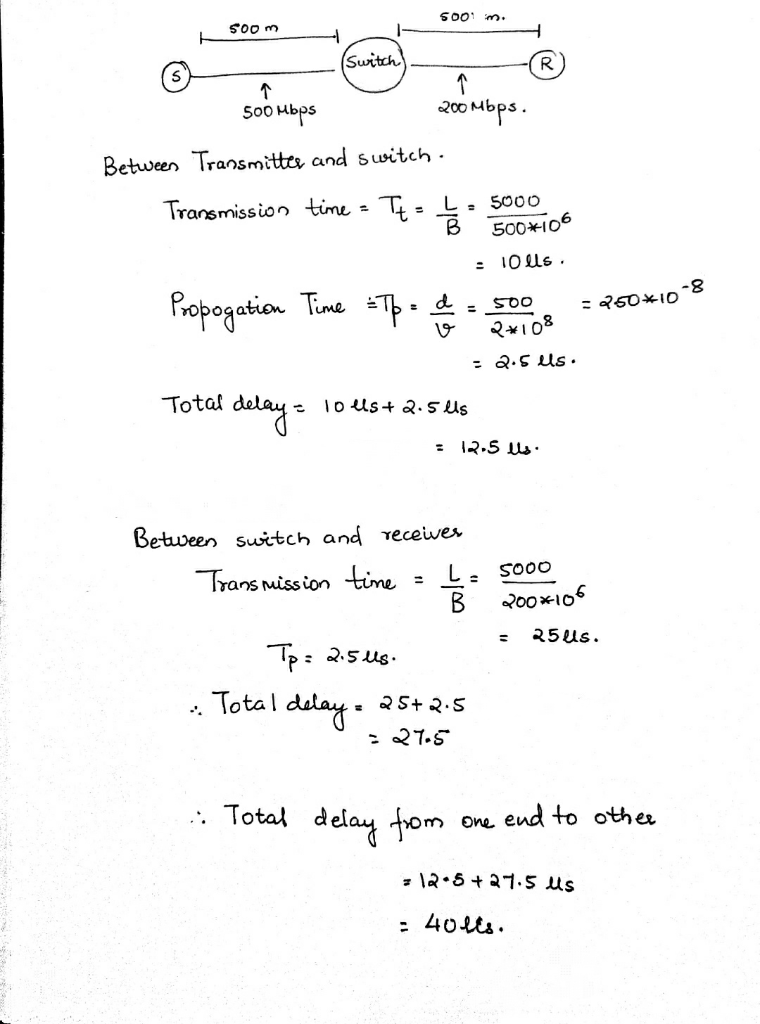 500 m
500 m.
S
Switch
R
↑
↑
500 Mbps
200 Mbps.
Between Transmitter and switch.
Transmission time = Tt = L/B = 5000/500*10^6
= 10 µs.
Propogation Time = Tp = d/v = 500/2*10^8 = 250*10^-8
= 2.5 µs.
Total delay = 10 µs + 2.5 µs
= 12.5 µs.
Between switch and receiver
Transmission time = L/B = 5000/200*10^6
= 25 µs.
Tp = 2.5 µs.
∴ Total delay = 25 + 2.5
= 27.5
∴ Total delay from one end to other
= 12.5 + 27.5 µs
= 40 µs.